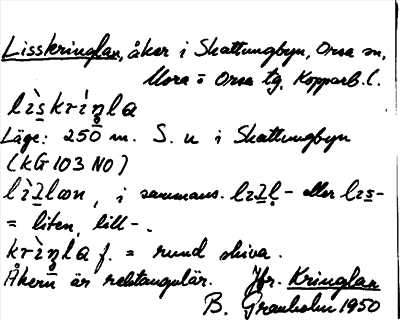 Lisskringlan, åker i Skattungbyn, Orsa sn,
Mora o Orsa tg, Kopparb. l.
lìskrìŋla
Läge: 250 m. S. u i Skattungbyn
(KG 103 NO)
i sammans. eller lɩs-
= liten, lill-.
krìŋla f. = rund skiva.
Åkern är rektangulär. Jfr. Kringlan
B. Granholm 1950